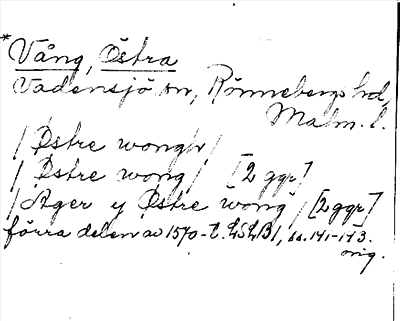 * Vång, Östra
Vadensjö sn, Rönnebergs hd,
Malm. l.
/ Østre wongh /
/ Østre wong / [2 ggr]
/ Ager y Østre wong / [2 ggr]
förra delen av 1570-t. LSLB 1, ss. 141-143.
orig.